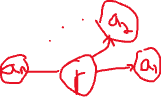 a₂
aₙ
r
a₁